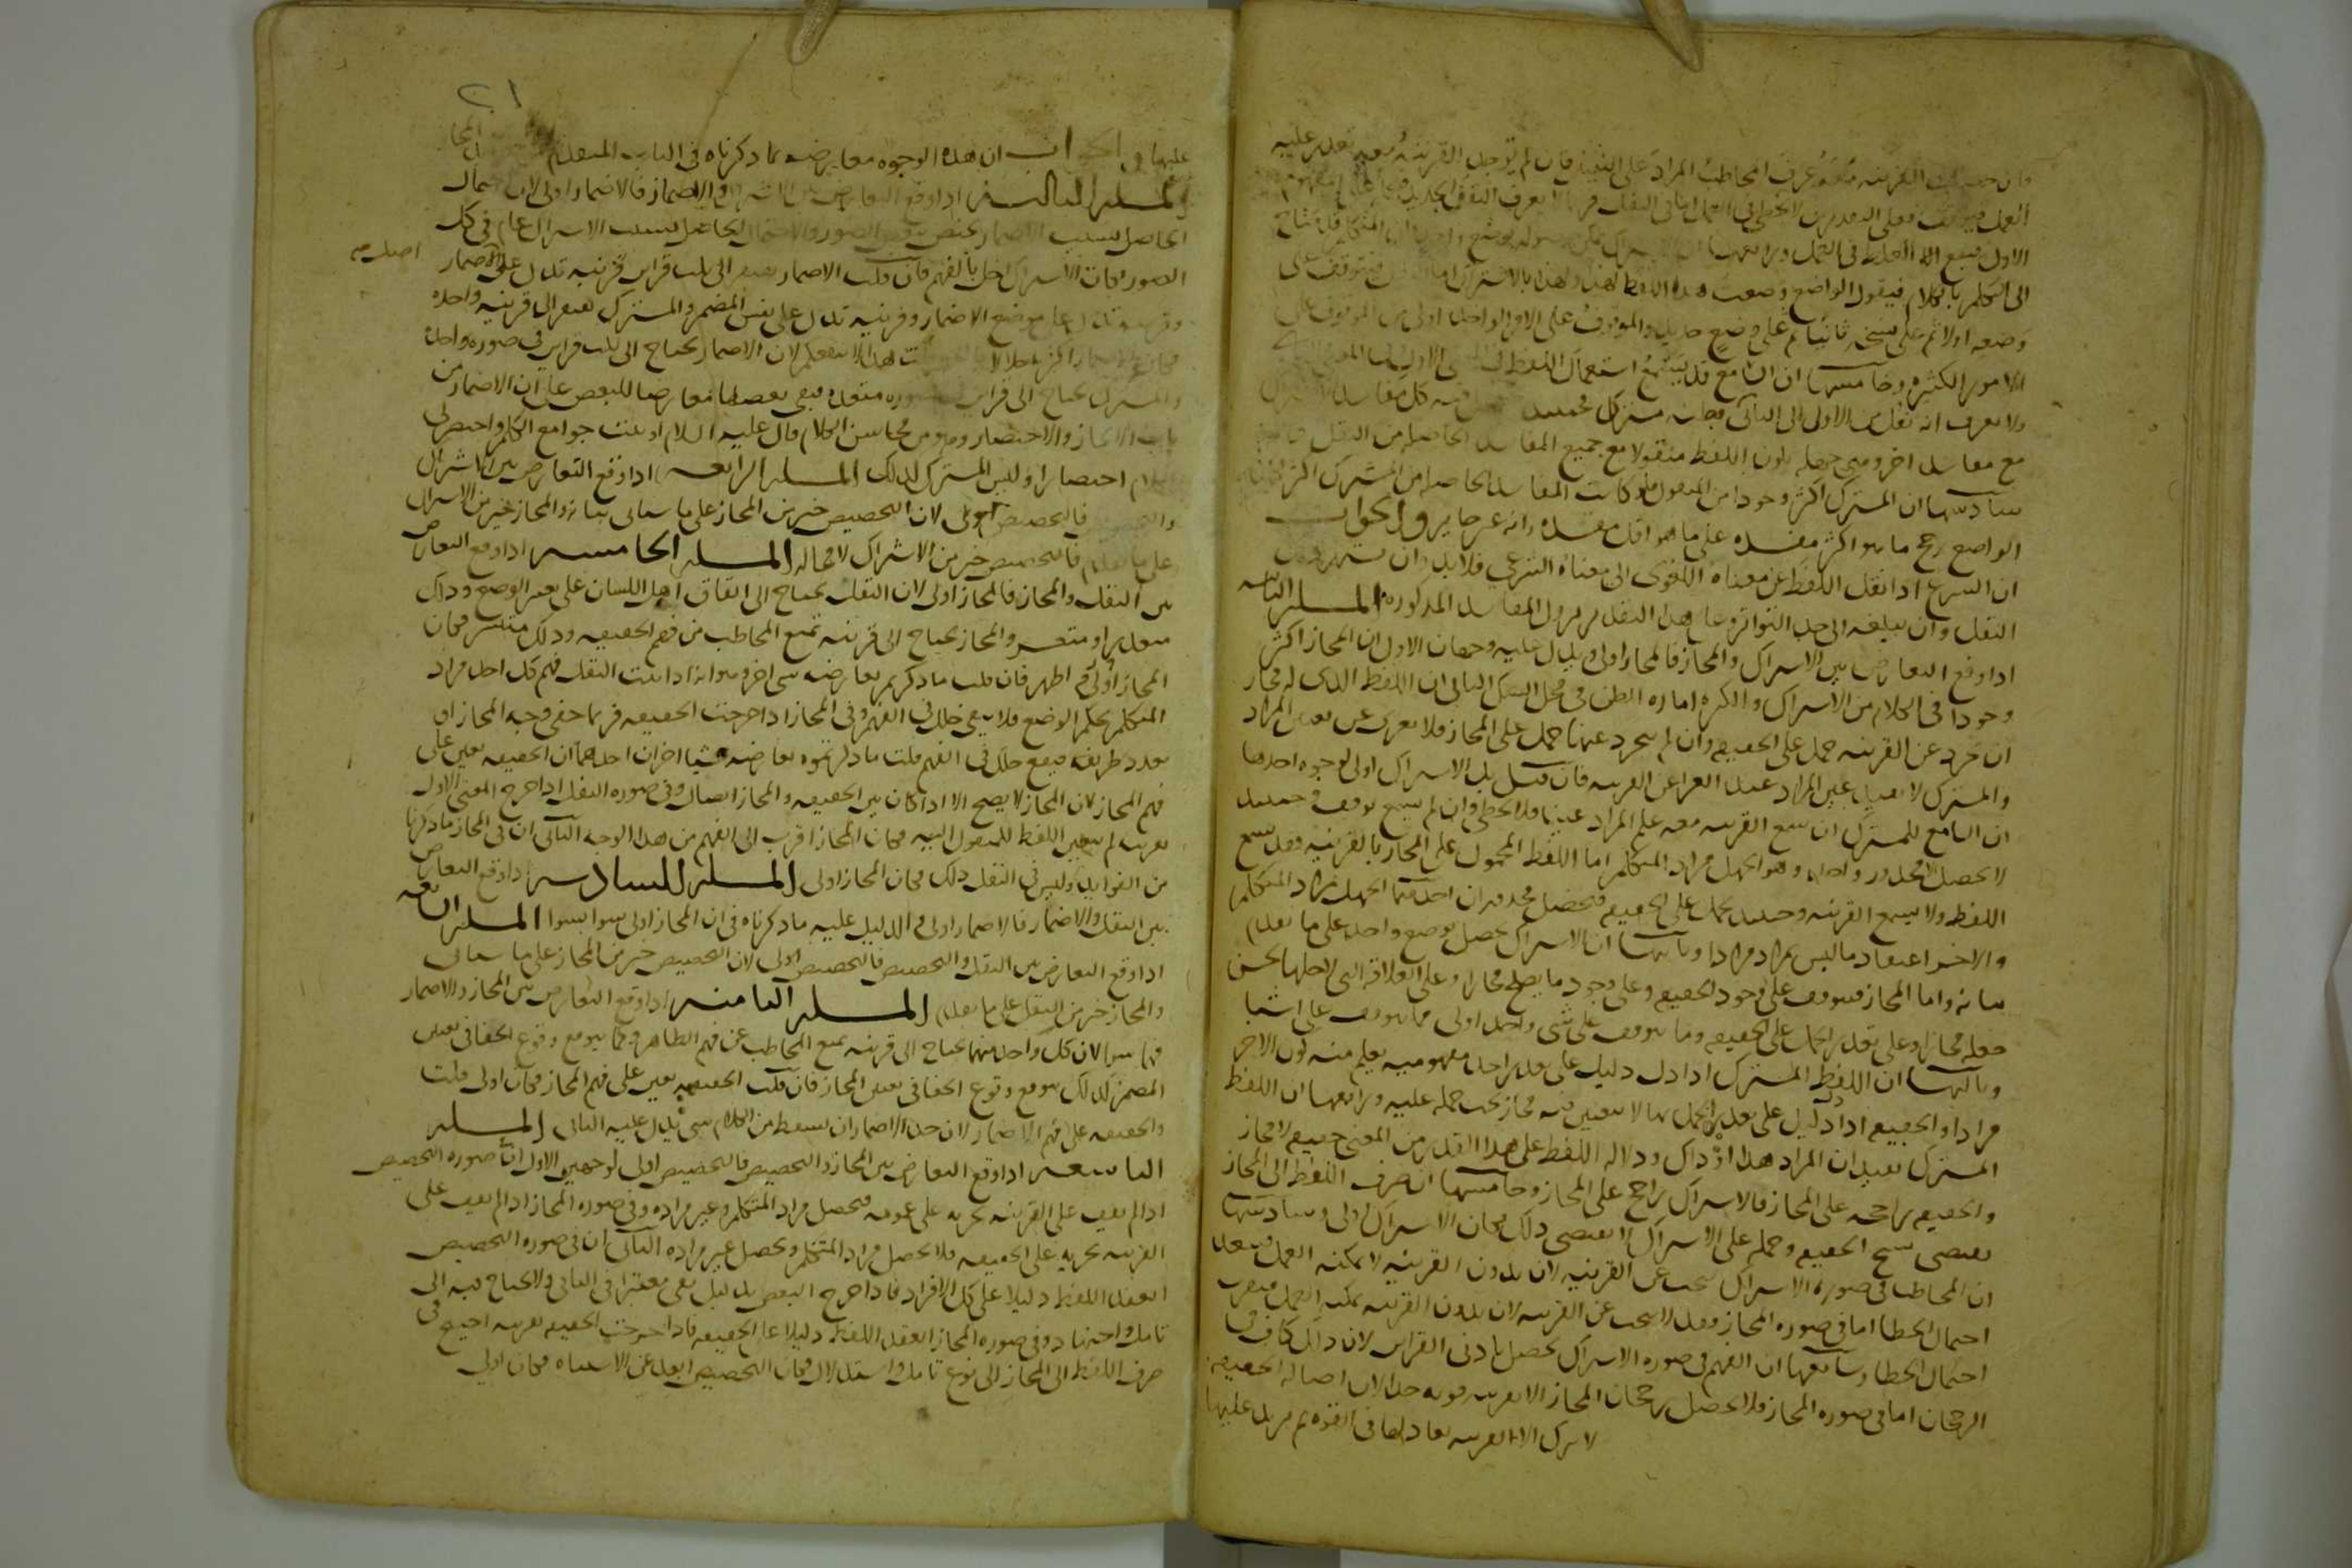 وان حصلت القرينه معه عرف المخاطب المراد على التعيين فان لم توجد القرينه معه تعذر عليه
العمل فيتوقف فعلى التقديرين لا يخطى في العمل اما في النقل فربما لا يعرف النقل الجديد فيحمله على المفهوم
الاول فيقع له الغلط في العمل ورابعها ان الاشتراك يمكن حصوله بوضع واحد فان المتكلم قد يحتاج
الى التكلم بالكلام فيقول الواضع وضعت هذا اللفظ لهذا ولهذا بالاشتراك اما النقل فيتوقف على
وضعه اولا ثم على نسخه ثانيا ثم على وضع جديد والموقوف على الامر الواحد اولى من الموقوف على
الامور الكثيره وخامسها ان السامع قد يسمع استعمال اللفظ في المعنى الاول وفي المعنى الثاني
ولا يعرف انه نقل من الاول الى الثاني فيظنه مشتركا فحينئذ يحصل فيه كل مفاسد الاشتراك
مع مفاسد اخر وهي جهله بكون اللفظ منقولا مع جميع المفاسد الحاصله من النقل
سادسها ان المشترك اكثر وجودا من المنقول فلو كانت المفاسد الحاصله من المشترك اكثر لكان
الواضع رجح ما هو اكثر مفسده على ما هو اقل مفسده وانه غير جايز والجواب
ان الشرع اذا نقل اللفظ عن معناه اللغوى الى معناه الشرعي فلا بد وان يشتهر ذلك
النقل وان يبلغه الى حد التواتر وعلى هذا التقدير تزول المفاسد المذكوره المسله الثانيه
اذا وقع التعارض بين الاشتراك والمجاز فالمجاز اولى ويدل عليه وجهان الاول ان المجاز اكثر
وجودا في الكلام من الاشتراك والكثره اماره الظن في محل الشك الثاني ان اللفظ الذى له مجاز
ان تجرد عن القرينه حمل على الحقيقه وان لم يتجرد عنها حمل على المجاز فلا يعرى عن تعيين المراد
والمشترك لا يفيد عين المراد عند العرا عن القرينه فان قيل بل الاشتراك اولى لوجوه احدها
ان السامع للمشترك ان سمع القرينه معه علم المراد عينا فلا يخطى وان لم يسمع توقف فحينئذ
لا يحصل الا محذور واحد وهو الجهل بمراد المتكلم اما اللفظ المحمول على المجاز بالقرينه فقد يسمع
اللفظ ولا يسمع القرينه وحينئذ يحمله على الحقيقه فيحصل محذوران احدهما الجهل بمراد المتكلم
والاخر اعتقاد ما ليس بمراد مرادا وثانيها ان الاشتراك يحصل بوضع واحد على ما تقدم
بيانه واما المجاز فيتوقف على وجود الحقيقه وعلى وجود ما يصلح مجازا وعلى العلاقه التي لاجلها يحسن
جعله مجازا وعلى تعذر الحمل على الحقيقه وما يتوقف على شى واحد اولى مما يتوقف على اشيا
وثالثها ان اللفظ المشترك اذا دل دليل على تعذر احد مفهوميه يعلم منه كون الاخر
مرادا والحقيقه اذا دل دليل على تعذر الحمل بها لا يتعين فيه مجاز يجب حمله عليه ورابعها ان اللفظ
المشترك يفيد ان المراد هذا او ذاك ودلاله اللفظ على هذا القدر من المعنى حقيقه لا مجاز
والحقيقه راجحه على المجاز فالاشتراك راجح على المجاز وخامسها ان صرف اللفظ الى المجاز
يقتضى نسخ الحقيقه وحمله على الاشتراك لا يقتضى ذلك فكان الاشتراك اولى وسادسها
ان المخاطب في صوره الاشتراك يبحث عن القرينه لان بدون القرينه لا يمكنه العمل فيبعد
احتمال الخطا اما في صوره المجاز فقد لا يبحث عن القرينه لان بدون القرينه يمكنه العمل فيقرب
احتمال الخطا وسابعها ان الفهم في صوره الاشتراك يحصل بادنى القراين لان ذلك كاف في
الرجحان اما في صوره المجاز فلا يحصل رجحان المجاز الا بقرينه قويه جدا لان اصاله الحقيقه
لا تترك الا لقرينه تعادلها في القوه ثم تزيد عليها
٢١
عليها والجواب ان هذه الوجوه معارضه بما ذكرناه في الباب المتقدم
المسله الثالثه اذا وقع التعارض بين الاشتراك والاضمار فالاضمار اولى لان الاجمال
الحاصل بسبب الاضمار يختص ببعض الصور والاجمال الحاصل بسبب الاشتراك عام في كل
الصور فكان الاشتراك اخل بالفهم فان قلت الاضمار يفتقر الى ثلث قراين قرينه تدل على اصل الاضمار
وقرينه تدل على موضع الاضمار وقرينه تدل على نفس المضمر والمشترك يفتقر الى قرينه واحده
فكان الاضمار اكثر اخلالا قلت هذا لا ينفعكم لان الاضمار يحتاج الى ثلث قراين في صوره واحده
والمشترك يحتاج الى قراين في صور متعدده فبقى بعضها معارضا للبعض على ان الاضمار من
باب الايجاز والاختصار وهو من محاسن الكلام قال عليه السلام اوتيت جوامع الكلم واختصر لى
الكلام اختصارا وليس المشترك كذلك المسله الرابعه اذا وقع التعارض بين الاشتراك
والتخصيص فالتخصيص اولى لان التخصيص خير من المجاز على ما سياتى بيانه والمجاز خير من الاشتراك
على ما تقدم فالتخصيص خير من الاشتراك لا محاله المسله الخامسه اذا وقع التعارض
بين النقل والمجاز فالمجاز اولى لان النقل يحتاج الى اتفاق اهل اللسان على تغير الوضع وذاك
متعذر او متعسر والمجاز يحتاج الى قرينه تمنع المخاطب من فهم الحقيقه وذلك متيسر فكان
المجاز اولى واظهر فان قلت ما ذكرتم يعارضه شى اخر وهو انه اذا ثبت النقل فهم كل احد مراد
المتكلم بحكم الوضع فلا يبقى خلل في الفهم وفي المجاز اذا خرجت الحقيقه فربما خفى وجه المجاز او
تعدد طريقه فيقع خلل في الفهم قلت ما ذكرتموه يعارضه شيا اخران احدهما ان الحقيقه تعين على
فهم المجاز لان المجاز لا يصح الا اذا كان بين الحقيقه والمجاز اتصال وفي صوره النقل اذا خرج المعنى الاول
بقرينه لم يتعين اللفظ للمنقول اليه فكان المجاز اقرب الى الفهم من هذا الوجه الثاني ان في المجاز ما ذكرنا
من الفوايد وليس في النقل ذلك فكان المجاز اولى المسله السادسه اذا وقع التعارض
بين النقل والاضمار فالاضمار اولى والدليل عليه ما ذكرناه في ان المجاز اولى سوا بسوا المسله السابعه
اذا وقع التعارض بين النقل والتخصيص فالتخصيص اولى لان التخصيص خير من المجاز على ما سياتى
والمجاز خير من النقل على ما تقدم المسله الثامنه اذا وقع التعارض بين المجاز والاضمار
فهما سوا لان كل واحد منهما يحتاج الى قرينه تمنع المخاطب عن فهم الظاهر وكما يتوقع وقوع الخفا في تعيين
المضمر كذلك يتوقع وقوع الخفا في تعيين المجاز فان قلت الحقيقه تعين على فهم المجاز فكان اولى قلت
والحقيقه تعين على فهم الاضمار لان حد الاضمار ان يسقط من الكلام شى يدل عليه الباقى المسله
التاسعه اذا وقع التعارض بين المجاز والتخصيص فالتخصيص اولى لوجهين الاول ان في صوره التخصيص
اذا لم يقف على القرينه يجريه على عمومه فيحصل مراد المتكلم وغير مراده وفي صوره المجاز اذا لم يقف على
القرينه يجريه على الحقيقه فلا يحصل مراد المتكلم ويحصل غير مراده الثاني ان في صوره التخصيص
انعقد اللفظ دليلا على كل الافراد فاذا خرج البعض بدليل بقى معتبرا في الباقى ولا يحتاج فيه الى
تامل واجتهاد وفي صوره المجاز انعقد اللفظ دليلا على الحقيقه فاذا خرجت الحقيقه بقرينه احتيج في
صرف اللفظ الى المجاز الى نوع تامل واستدلال فكان التخصيص ابعد عن الاشتباه فكان اولى